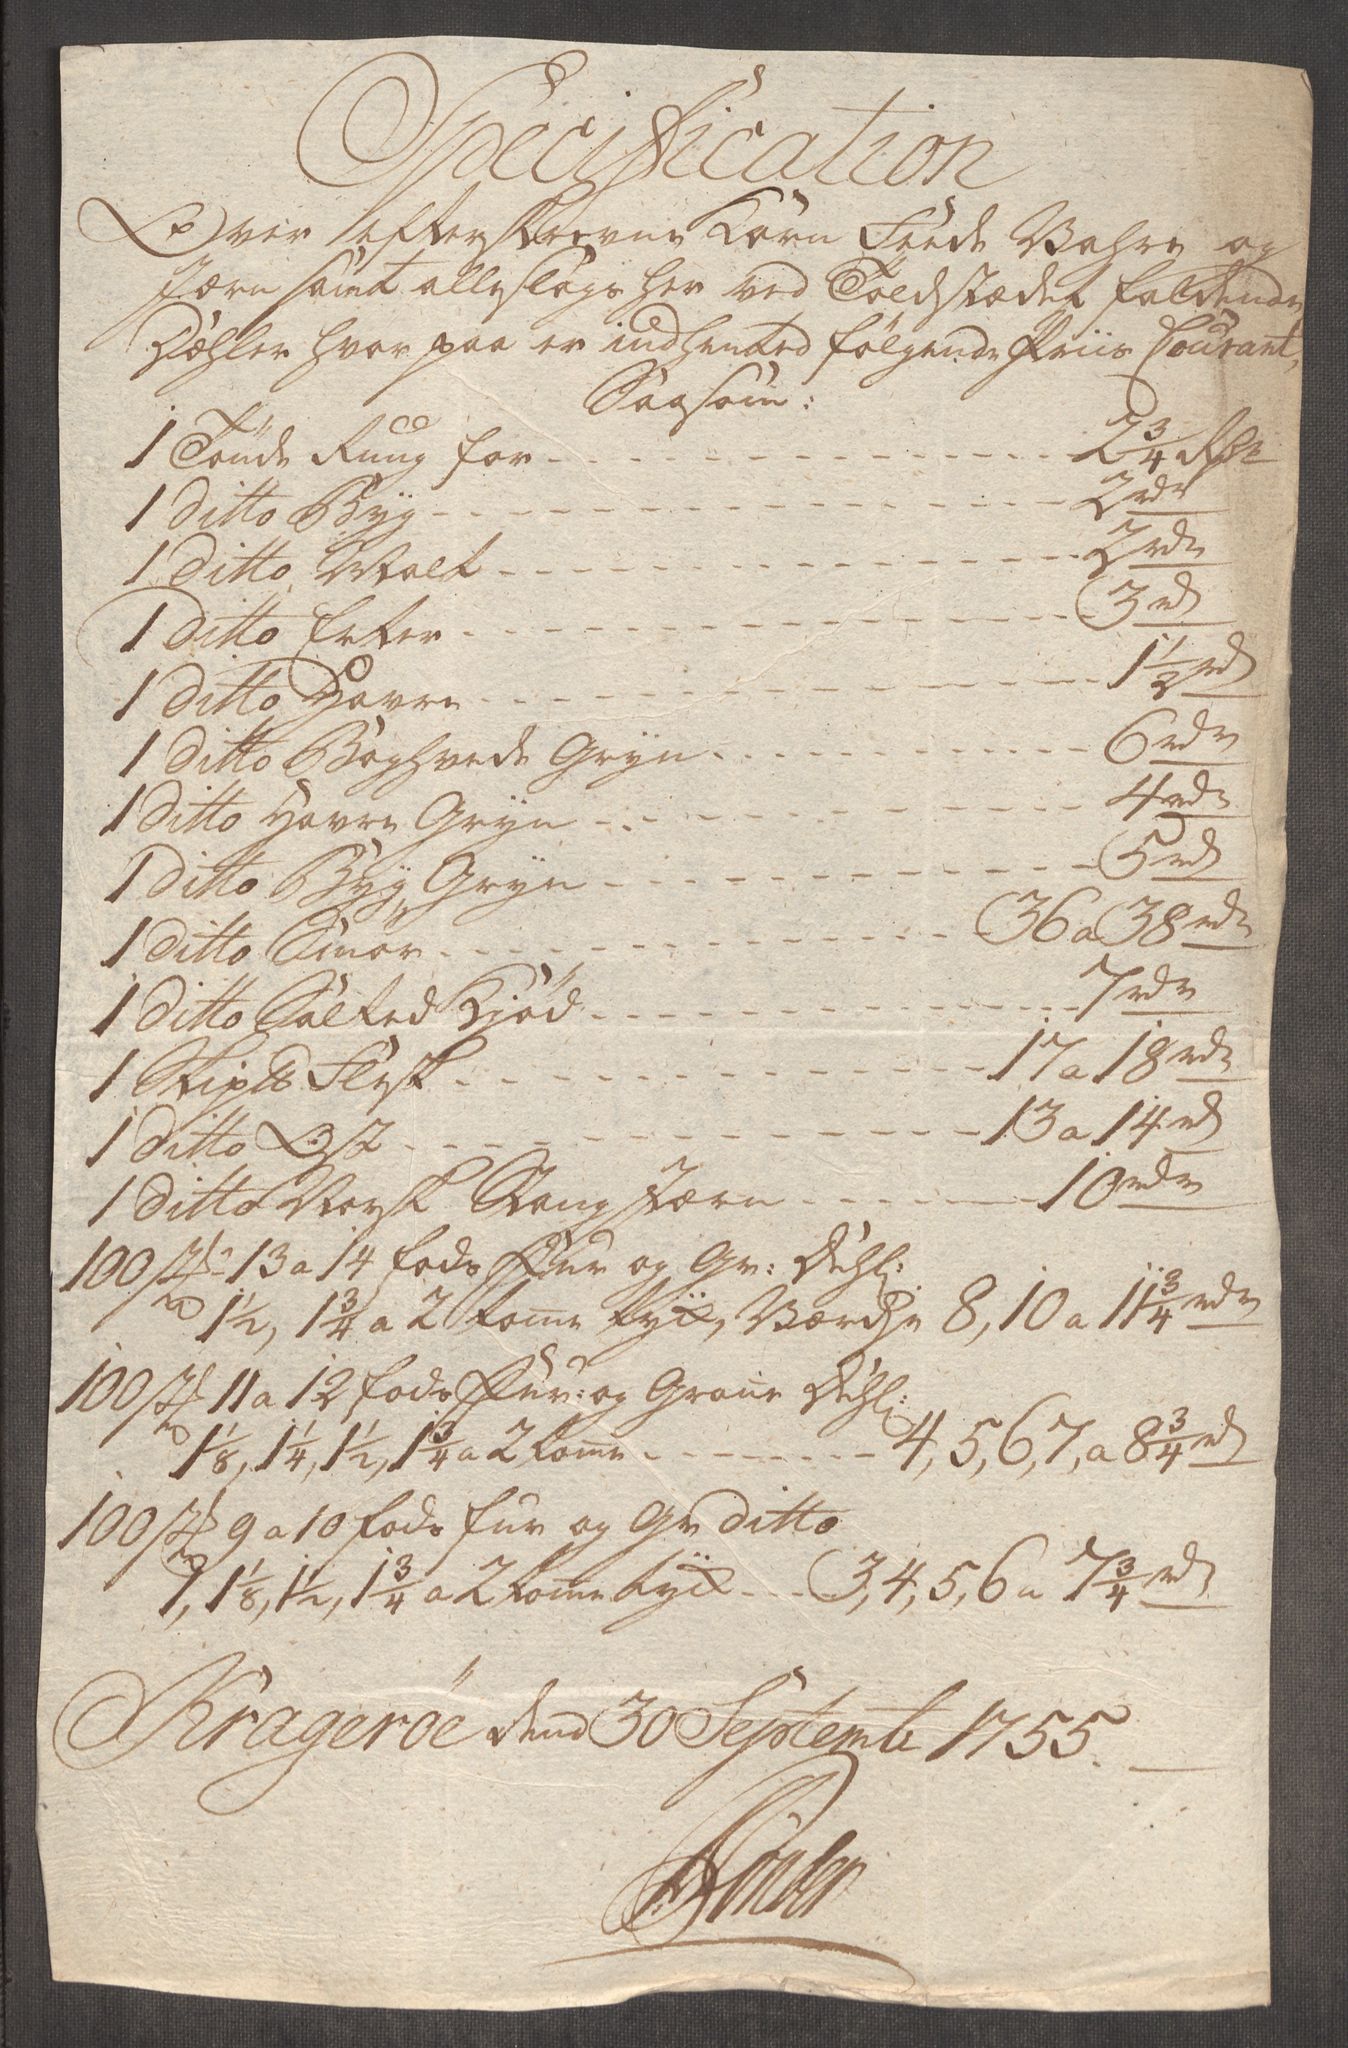 Specification
Over efterskrevne Korn Feede Vahre og
Jærn samt alle slags her ved Toldstædet faldende
Dæhler hvor paa er indhented følgende Priis Courant,
Saasom:
1 Tønde Rug for - - - 2 3/4 Rdr
1 ditto Byg - - - 2 rdr
1 ditto Malt - - - 2 rdr
1 ditto Erter - - - 3 rd
1 ditto Havre - - - 1 1/2 rd
1 ditto Boghvede Gryn - - - 6 rdr
1 ditto Havre Gryn - - - 4 rdr
1 ditto Byg Gryn - - - 5 rd
1 ditto Smør - - - 36 a 38 rdr
1 ditto Salted Kiød - - - 7 rdr
1 Skip℔ Flesk - - - 17 a 18 rdr
1 ditto Ost - - - 13 a 14 rd
1 ditto Norsk Stang Jærn - - - 10 rdr
100 st 13 a 14 fods Fur og Gr: Dehl:
1 1/2, 1 3/4 a 2 tomme tyk, Værdie 8, 10 a 11 3/4 rdr
100 st 11 a 12 fods Fur: og Grane Dehl:
1 1/8, 1 1/4, 1 1/2, 1 3/4 a 2 tomme - - - 4, 5, 6, 7, a 8 3/4 rd
100 st 9 a 10 fods fur og Gr ditto
1, 1 1/8, 1 1/2, 1 3/4 a 2 tomme tyk - - - 3, 4, 5, 6 a 7 3/4 rd
Kragerøe dend 30 Septembr 1755.